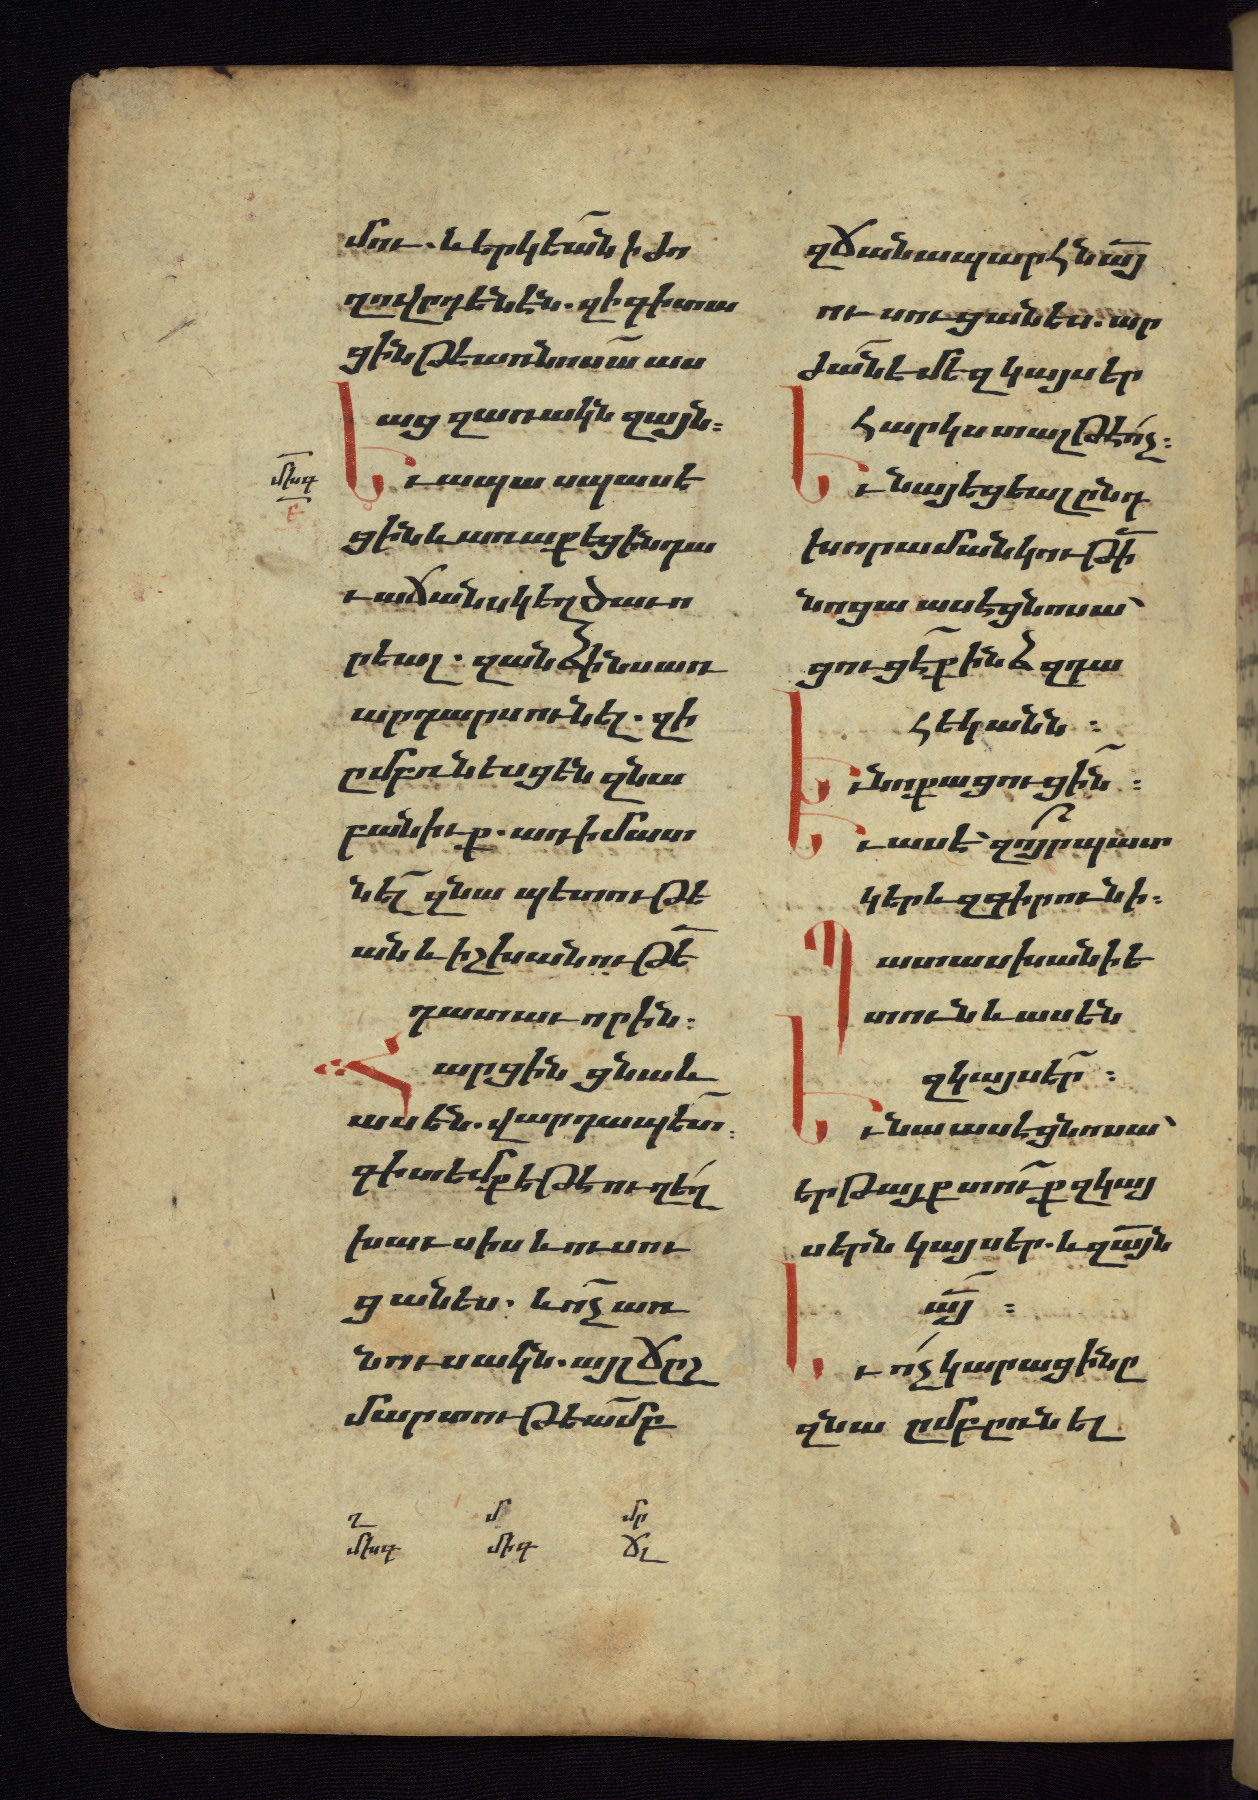 մու. և երկեան ի ժո
ղովրդենէն. զի գիտա
ցին թէ առ նոսա աս
աց զառակն զայն։
մխգ
բ
Եւ ապա սպասե
ցին և առաքեցին դա
ւաճանս կեղծաւո
րեալ. զանձինս առ
արդարս ունել. զի
ըմբռնեսցեն զնա
բանիւք. առ ի մատ
նել զնա պետութե
ան և իշխանութե̄
դատաւորին։
Հարցին ցնա և
ասեն. վարդապետ։
գիտեմք եթե ուղեղ
խաւսիս և ուսու
ցանես. և ոչ առ
նուս ակն. այլ ճըշ
մարտութեամբ
զճանապարհն ա̄յ
ուսուցանես. ար
ժան է մեզ կայսեր
հարկս տալ թե ոչ։
Եւ նայեցեալ ընդ
խորամանկութի̄
նոցա ասե ցնոսա՝
ցուցեք ինձ զդա
հեկանն։
Եւ նոքա ցուցին։
Եւ ասե՝ զոյր պատ
կեր և զգիր ունի։
Պատասխանի ե
տուն և ասեն
զկայսեր։
Եւ նա ասե ցնոսա՝
երթայք տուք զկայ
սերն կայսեր. և զա̄յն
ա̄յ։
Եւ ոչ կարացին ը
զնա ըմբըռնել
ղ մ մր
մխգ միգ ճլ